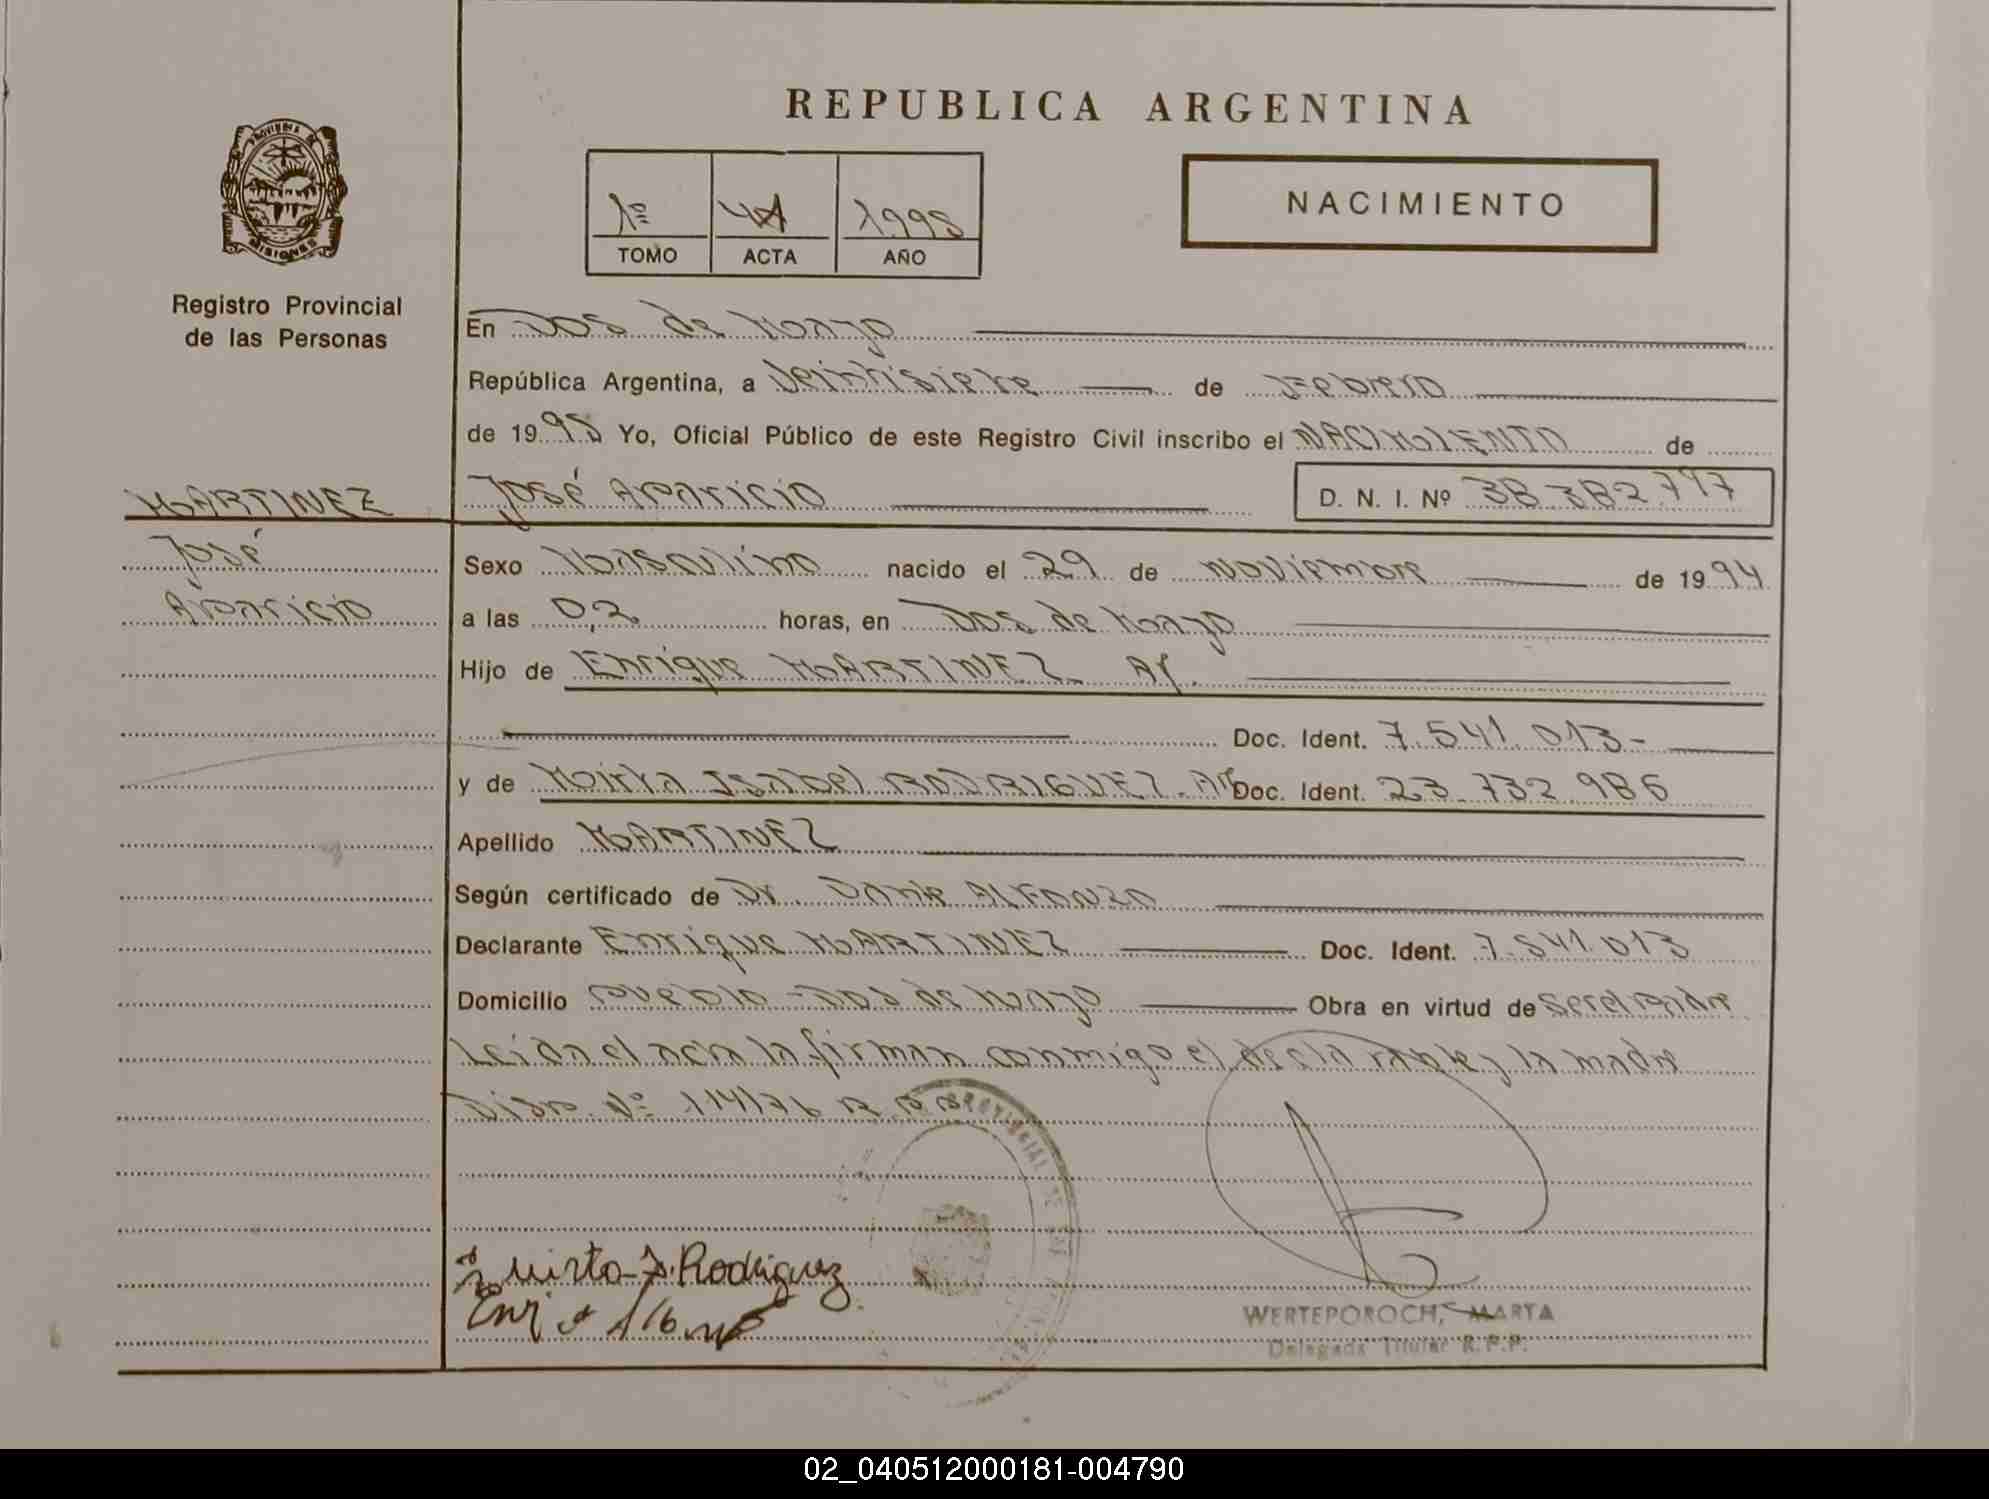 REPUBLICA ARGENTINA
PROVINCIA DE
MISIONES
Registro Provincial
de las Personas
1º
TOMO
ACTA
1995
AÑO
NACIMIENTO
En Dos de Mayo
República Argentina, a Veintisiete de Febrero
de 1995 Yo, Oficial Público de este Registro Civil inscribo el NACIMIENTO de
MARTINEZ
José Aparicio D. N. I. Nº 38.382.797
José
Aparicio
Sexo Masculino nacido el 29 de Noviembre de 1994
a las 0,2 horas, en Dos de Mayo
Hijo de Enrique MARTINEZ Ar.
Doc. Ident. 7.541.013-
y de Mirta Isabel RODRIGUEZ. Ar Doc. Ident. 23.732.986
Apellido MARTINEZ
Según certificado de Dr. Dante ALFONZO
Declarante Enrique MARTINEZ Doc. Ident. 7.541.013
Domicilio Pueblo - Dos de Mayo Obra en virtud de Ser el Padre
Leída el acta la firman conmigo el declarante y la madre
Disp. Nº 114/76 R.P.P.
PROVINCIAL DE
Mirta I. Rodriguez
WERTEPOROCH, MARTA
Delegada Titular R.P.P.
02_040512000181-004790